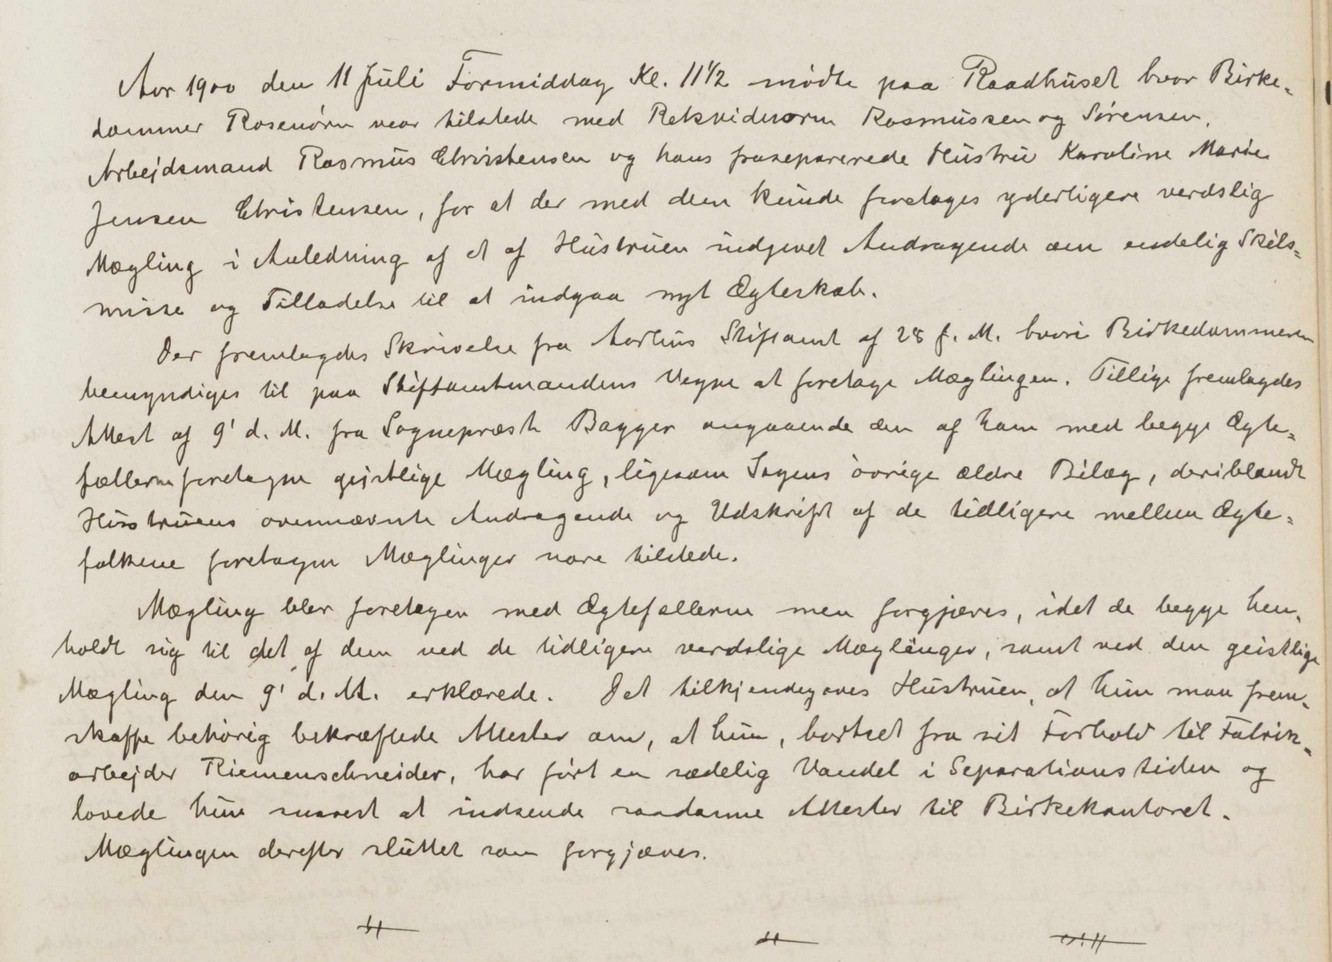 Aar 1900 den 11 Juli Formiddag Kl. 11½ mødte paa Raadhuset hvor Birke-
dommer Rosenørn var tilstede med Retsvidnerne Rasmussen og Sørensen,
Arbejdsmand Rasmus Christensen og hans fraseparerede Hustru Karoline Marie
Jensen Christensen, for at der med dem kunde foretages yderligere verdslig
Mægling i Anledning af et af Hustruen indgivet Andragende om endelig Skils-
misse og Tilladelse til at indgaa nyt Ægteskab.
Der fremlagdes Skrivelse fra Aarhus Stiftamt af 28 f. M. hvori Birkedommeren
bemyndiges til paa Stiftamtmandens Vegne at foretage Mæglingen. Tillige fremlagdes
Attest af 9' d. M. fra Sognepræst Bagger angaaende den af ham med begge Ægte-
fællerne foretagne gejstlige Mægling, ligesom Sagens øvrige ældre Bilag, deriblandt
Hustruens ovennævnte Andragende og Udskrift af de tidligere mellem Ægte-
folkene foretagne Mæglinger vare tilstede.
Mægling blev foretagen med Ægtefællerne men forgjæves, idet de begge hen-
holdt sig til det af dem ved de tidligere verdslige Mæglinger, samt ved den geistlige
Mægling den 9' d. M. erklærede. Det tilkjendegaves Hustruen, at hun maa frem-
skaffe behørig bekræftede Attester om, at hun, bortset fra sit Forhold til Fabrik-
arbejder Riemenschneider, har ført en sædelig Vandel i Separationstiden og
lovede hun snarest at indsende saadanne Attester til Birkekontoret.
Mæglingen derefter sluttet som forgjæves.